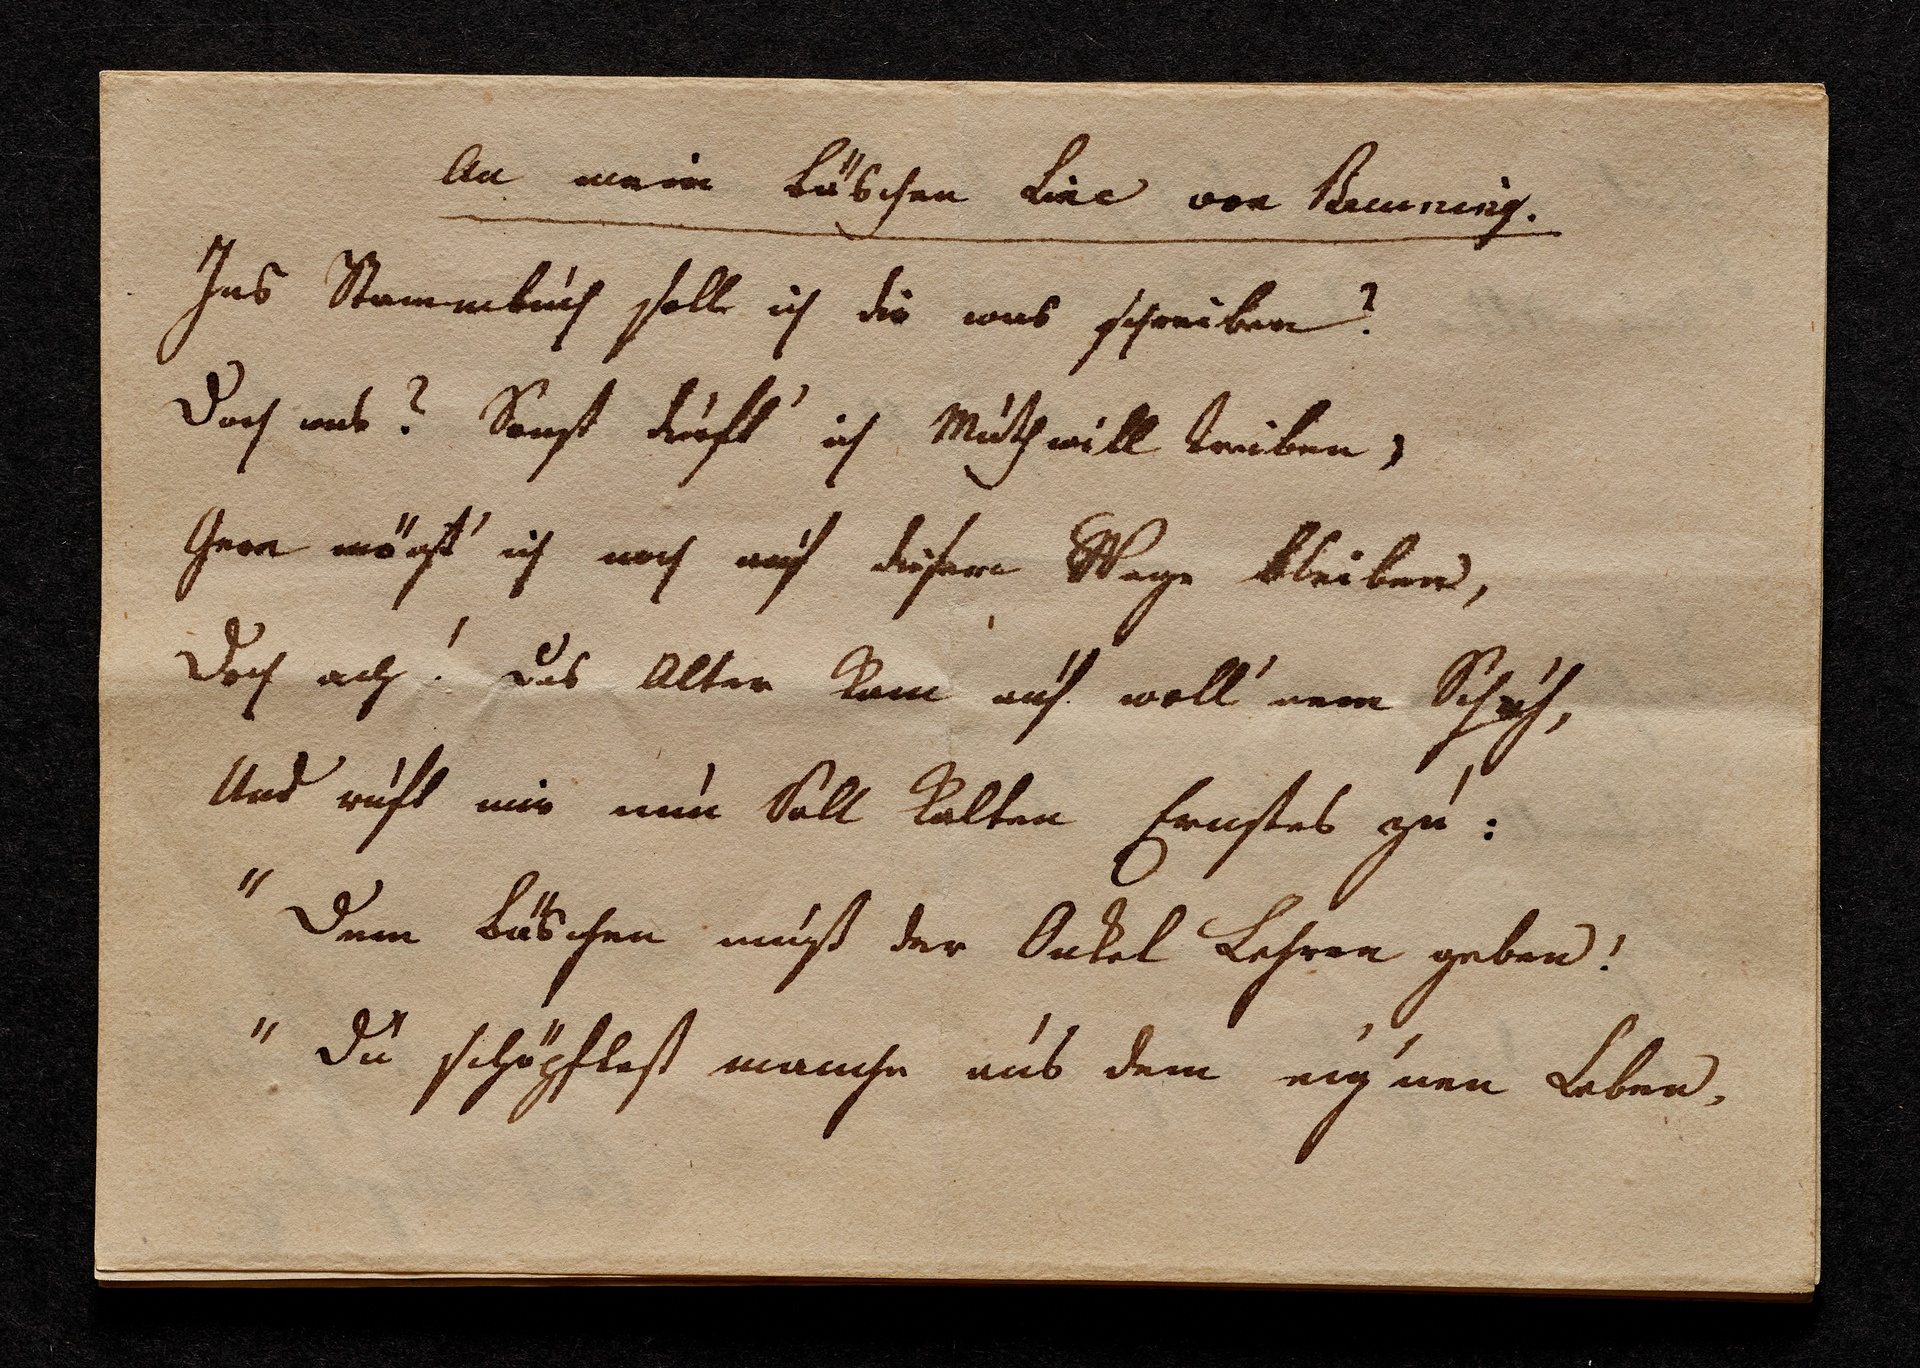 An mein Bäschen Line von Breuning.
Ins Stammbuch soll ich dir was schreiben?
Doch was? Sonst dürft' ich Muthwill treiben;
Gern möcht' ich noch auf diesem Wege bleiben,
Doch ach! das Alter kam auf woll'nem Schuh,
Und ruft mir nun voll kalten Ernstes zu:
"Dem Bäschen muß der Onkel Lehren geben!
"Du schöpftest manche aus dem eig'nen Leben.